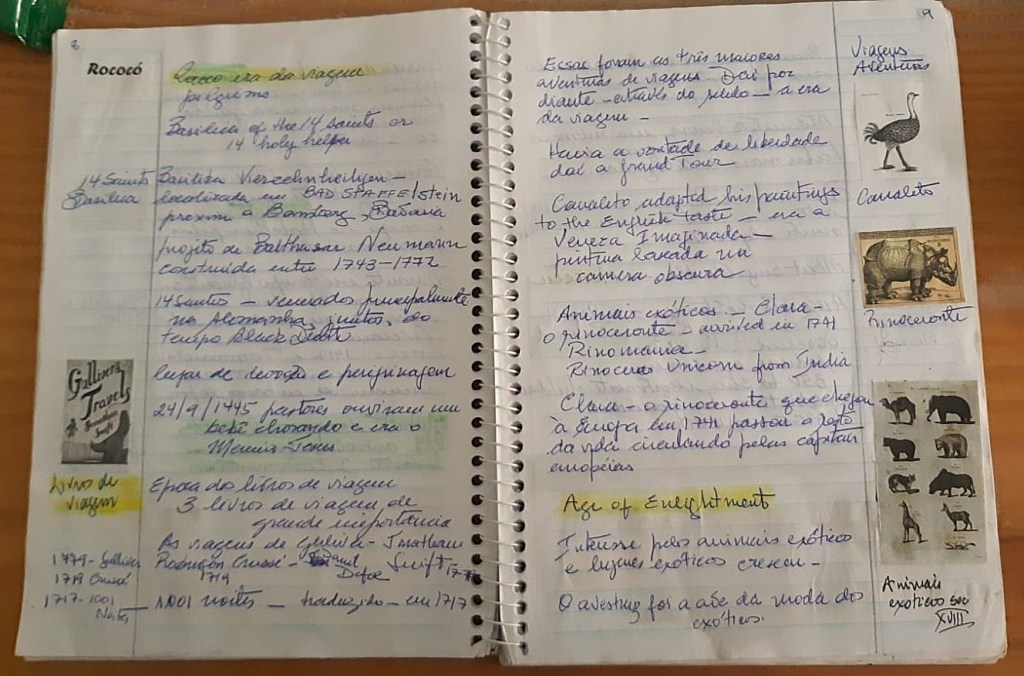 8
Rococó
Rococo era da viagem
peregrinos
Basilica of the 14 saints or
14 holy helper
14 Saints
Basilica
Basilica Vierzehnheiligen –
localizada em BAD STAFFElstein
proximo a Bamberg, Baviera
projeto de Balthasar Neumann
construida entre 1743-1772
14 Santos – venerados principalmente
na Alemanha, juntos, do
tempo Black Death
lugar de devoção e peregrinagem
24/9/1445 pastores ouviram um
bebê chorando e era o
Menino Jesus
Gulliver's
Travels
Jonathan
Swift
Livros de
viagem
Epoca dos livros de viagem
3 livros de viagem de
grande importância
As viagens de Gulliver – Jonathan
Swift
Robinson Crusoé – Daniel
Defoe
1719
1001 noites – traduzido – em 1717
1719 Crusoé
1717-1001
Noites
9
Essas foram as três maiores
aventuras de viagens. Daí por
diante – através do século – a era
da viagem –
Havia a vontade de liberdade
daí a grand Tour
Canaleto adapted his paintings
to the English taste – era a
Veneza Imaginada –
pintura baseada na
camera obscura
Animais exóticos – Clara –
o rinoceronte – arrived in 1741
Rinomania –
Rinoceros Unicorn from India
Clara – o rinoceronte que chegou
à Europa em 1741 passou o resto
da vida circulando pelas capitais
européias
Age of Enlightment
Interesse pelos animais exóticos
e lugares exóticos cresceu –
O avestruz foi a ave da moda dos
exóticos.
Viagens
Aventuras
Canaleto
Rinoceronte
Animais
exoticos sec
XVIII